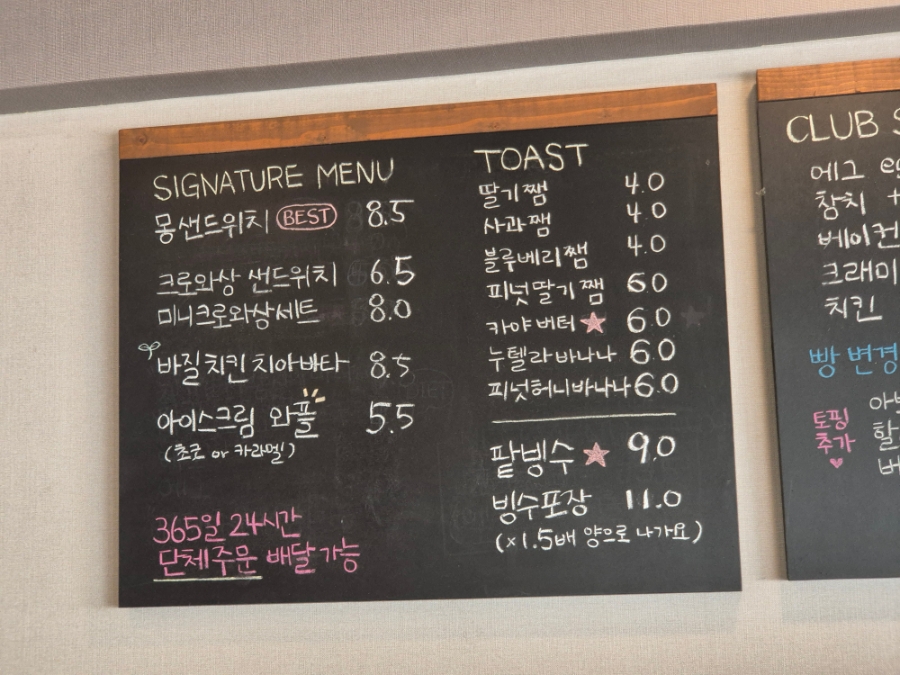 SIGNATURE MENU
몽샌드위치 BEST 8.5
크로와상 샌드위치 6.5
미니크로와상세트 8.0
바질치킨 치아바타 8.5
아이스크림 와플 5.5
(초코 or 카라멜)
365일 24시간
단체주문 배달가능
TOAST
딸기쨈 4.0
사과쨈 4.0
블루베리쨈 4.0
피넛딸기쨈 6.0
카야버터 6.0
누텔라바나나 6.0
피넛허니바나나 6.0
팥빙수 9.0
빙수포장 11.0
(×1.5배 양으로 나가요)
CLUB
에그
참치 +
베이컨
크래미
치킨
빵 변경
토핑
추가